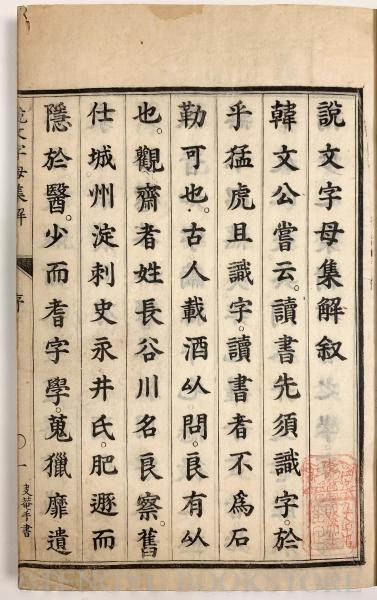 說文字母集解叙
韓文公嘗云。讀書先須識字。於
乎猛虎且識字。讀書者不爲石
勒可也。古人載酒从問。良有从
也。觀齋者姓長谷川名良察。舊
仕城州淀刺史永井氏。肥遯而
隱於醫。少而耆字學。蒐獵靡遺
說文字母集解
序
一
BOOKSTORE